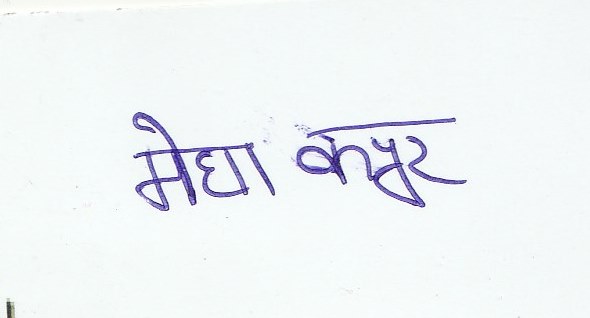 मेघा कपुर